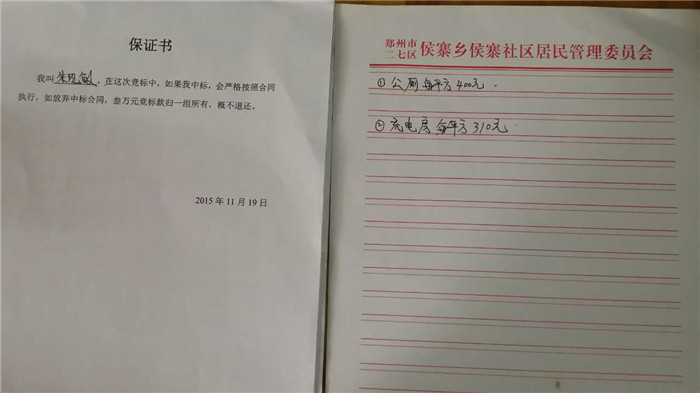 保证书
我叫朱现敏，在这次竞标中，如果我中标，会严格按照合同
执行，如放弃中标合同，叁万元竞标款归一组所有，概不退还。
2015 年 11 月 19 日
郑州市
二七区 侯寨乡侯寨社区居民管理委员会
① 公厕 每平方 400元.
② 充电房 每平方 310元.